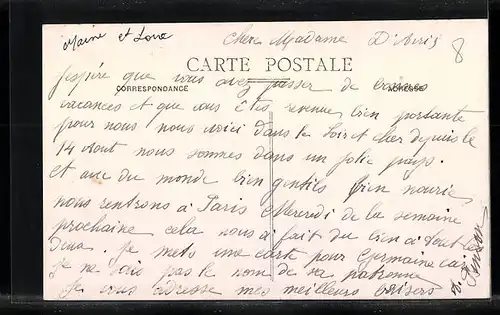 Maine et Loire
Chère Madame D'Avris
8
CARTE POSTALE
CORRESPONDANCE
ADRESSE
J'espére que vous avez passer de bonnes
vacances et que vous êtes revenue bien portante
pour nous nous voici dans le Loir et cher depuis le
14 Aout nous sommes dans un jolie pays.
et avec du monde bien gentils bien nourrie,
nous rentrons à Paris Mercredi de la semaine
prochaine cela nous a fait du bien à tout les
deux. Je mets une carte pour Germaine car
je ne sais pas le nom de sa patronne
Je vous adresse mes meilleurs baisers